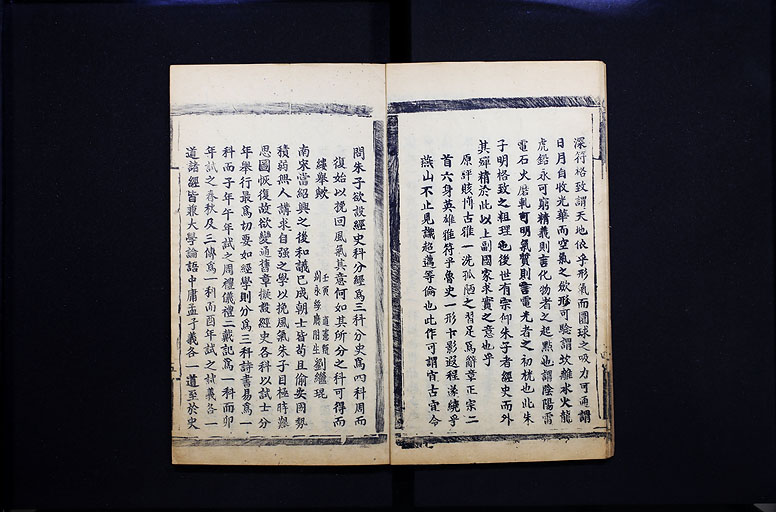 深符格致謂天地依乎形氣而圜球之吸力可再謂
日月自收光華而空氣之厭形可驗謂坎離水火龍
虎鉛永可窮精義則言化物者之起點也謂陰陽雷
電石火磨軋可明氣質則言電光者之初桄也此朱
子明格致之粗理也後世有宗仰朱子者經史而外
其殫精於此以上副國家求實之意也乎
原評賅博古雅一洗孤陋之習足為辭章正宗二
首六身英雄雅符乎魯史一形十影遐程遂繞乎
燕山不止見識超邁等倫也此作可謂宵古宜今
問朱子欲設經史科分經為三科分史為四科周而
復始以挽回風氣其意何如其所分之科可得而
縷舉歟
壬寅 道憲賢
劉永 府附生劉繼琨
南宋當紹興之後和議已成朝士皆苟且偷安國勢
積弱無人講求自强之學以挽風氣朱子目極時艱
思圖恢復故欲變通舊章擬設經史各科以試士分
年舉行最為切要如經學則分為三科詩書易為一
科而子年午年試之周禮儀禮二戴記為一科而卯
年試之春秋及三傳為一科而酉年試之試義各一
道諸經皆兼大學論語中庸孟子義各一道至於史